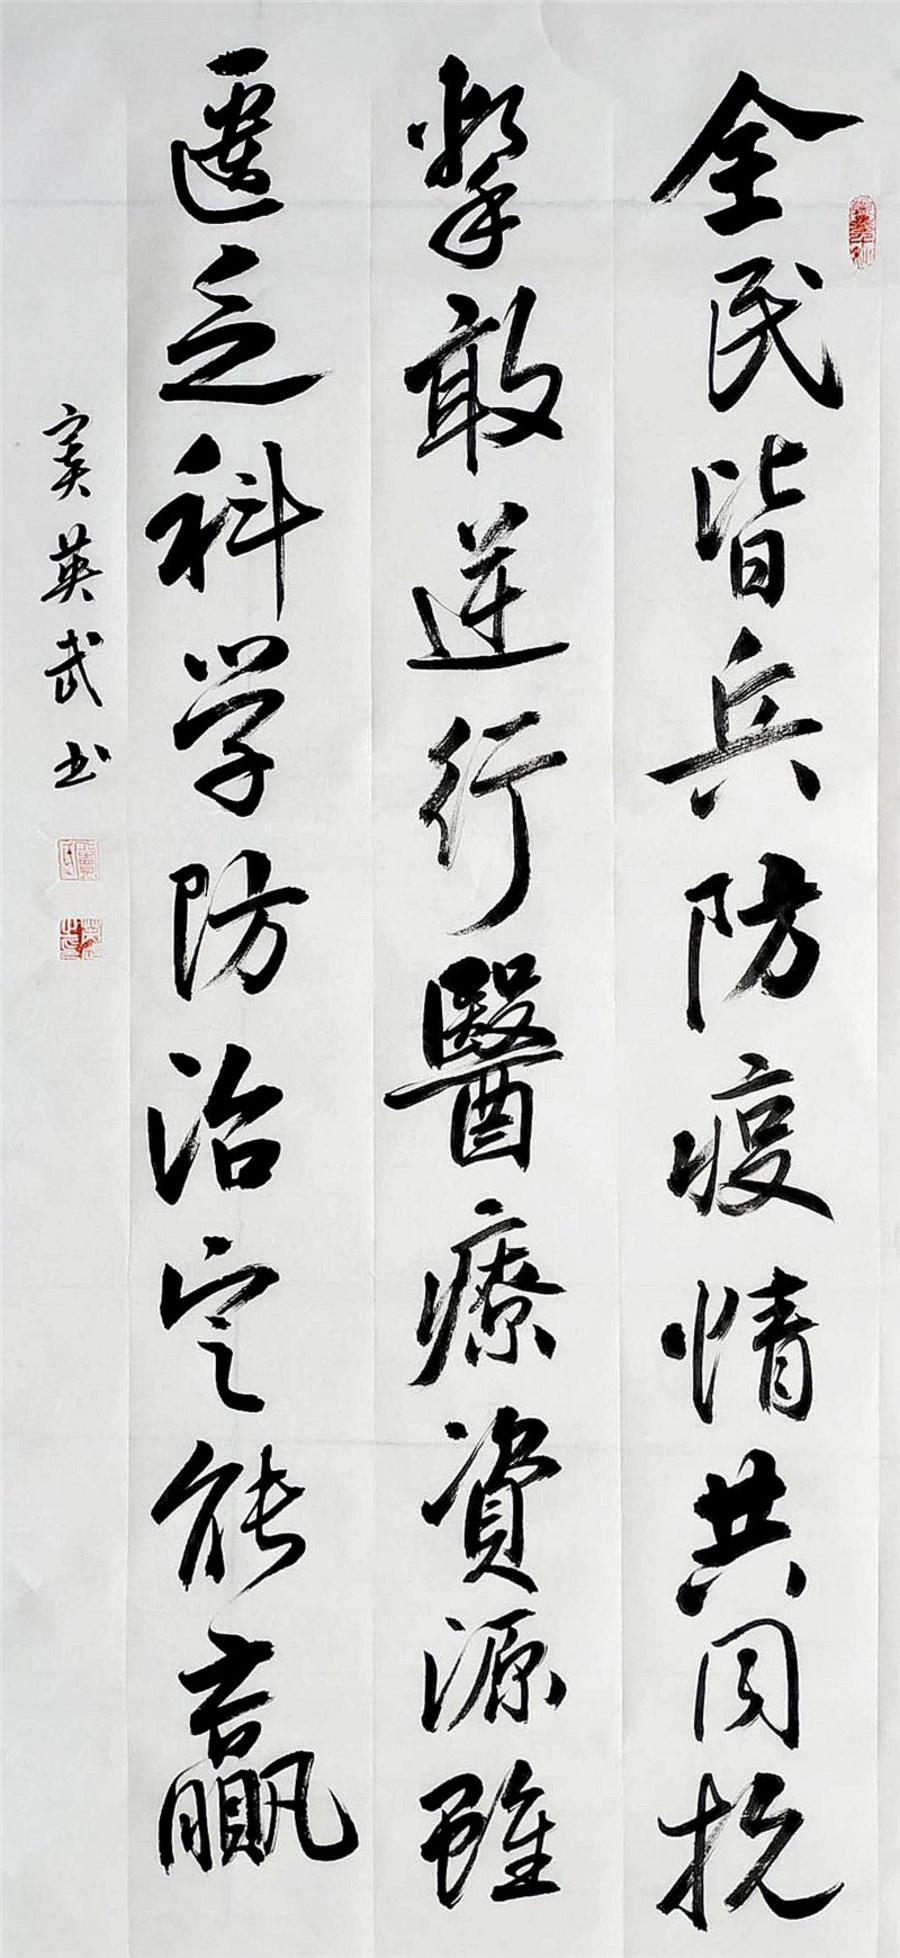 全民皆兵防疫情共同抗
擊敢逆行醫療資源雖
匱乏科学防治定能贏
窦英武书